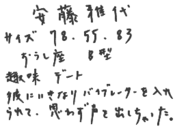 安藤雅代
サイズ 78.55.83
おうし座 B型
趣味 デート
彼にいきなりバイブレーターを入れ
られて、思わず声を出しちゃいた。